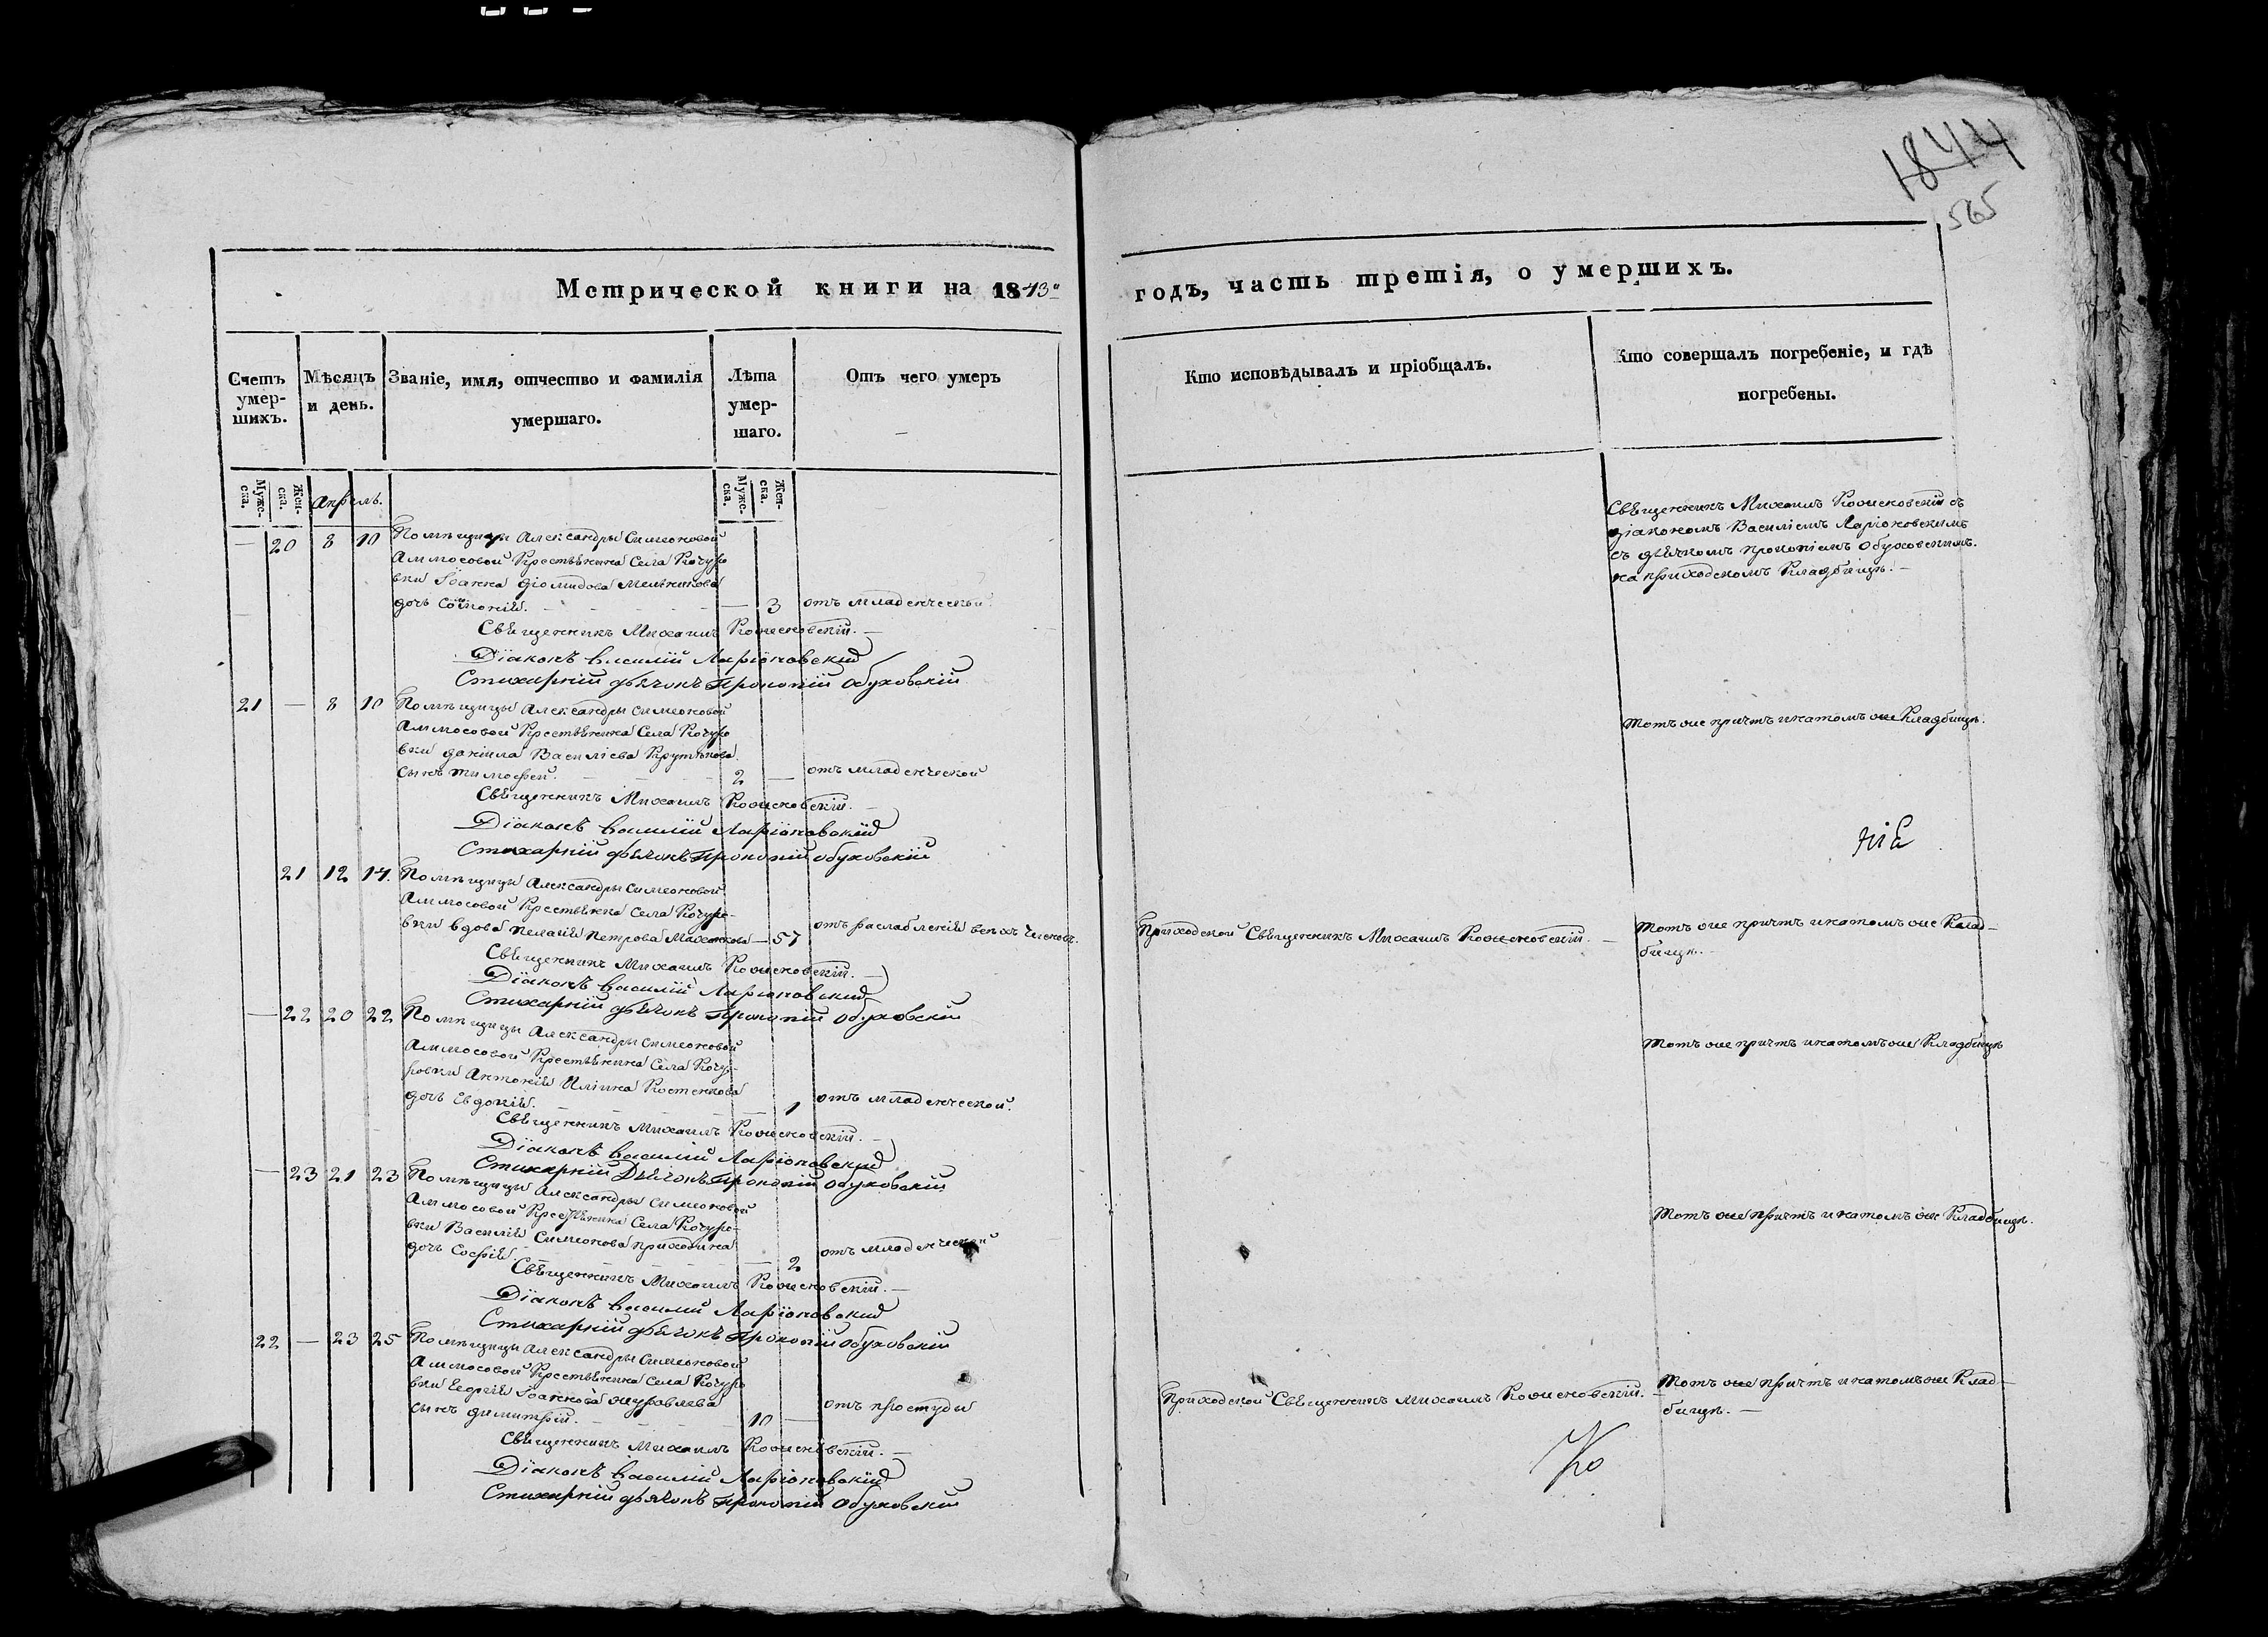 1844
565
Метрической книги на 1843 годъ, часть третія, о умершихъ.
Счетъ умер-шихъ.
Мѣсяцъ и день.
Званіе, имя, отчество и фамилія умершаго.
Лѣта умер-шаго.
Отъ чего умеръ
Кто исповѣдывалъ и пріобщалъ.
Кто совершалъ погребеніе, и гдѣ погребены.
Муже-ска.
Жен-ска.
Апрель.
Муже-ска.
Жен-ска.
— 20 8 10
Помѣщицы Александры Симеоновой
Аммосовой Крестьянина Села Кочуро
вки Іоанна Діомидова Мельникова
дочь — 3 отъ младенческой
Священникъ Михаилъ
Діаконъ Василій Ларіоновскій
Стихарній дьячокъ Прокопій Обуховскій
Священникъ Михаилъ съ
діакономъ Василіемъ Ларіоновскимъ
съ дьячкомъ Прокопіемъ Обуховскимъ.
на приходскомъ Кладбищѣ. —
21 — 8 10
Помѣщицы Александры Симеоновой
Аммосовой Крестьянина Села Кочуро
вки Даніила Василіева
сынъ Тимофей. 2 — отъ младенческой
Священникъ Михаилъ
Діаконъ Василій Ларіоновскій
Стихарній дьячокъ Прокопій Обуховскій
Тотъ же причтъ и на томъ же Кладбищѣ.
ніе
21 12 14.
Помѣщицы Александры Симеоновой
Аммосовой Крестьянка Села Кочуро-
вки вдова Пелагія Петрова — 57 отъ раслабленія всѣхъ членовъ.
Священникъ Михаилъ
Діаконъ Василій Ларіоновскій
Стихарній дьячокъ Прокопій Обуховскій
Приходской Священникъ Михаилъ
Тотъ же причтъ и на томъ же Клад-
бищѣ.
— 22 20 22
Помѣщицы Александры Симеоновой
Аммосовой Крестьянина Села Кочу-
ровки Антонія Иліина Костенкова
дочь Евдокія. — 1 отъ младенческой.
Священникъ Михаилъ
Діаконъ Василій Ларіоновскій
Стихарній Дьячокъ Прокопій Обуховскій
Тотъ же причтъ и на томъ же Кладбищѣ
— 23 21 23
Помѣщицы Александры Симеоновой
Аммосовой Крестьянина Села Кочуро-
вки Василія Симеонова
дочь Софія. — 2 отъ младенческой
Священникъ Михаилъ
Діаконъ Василій Ларіоновскій
Стихарній дьячокъ Прокопій Обуховскій
Тотъ же причтъ и на томъ же Кладбищѣ.
22 — 23 25
Помѣщицы Александры Симеоновой
Аммосовой Крестьянина Села Кочуро
вки Іоаннова Журавлева
сынъ Димитрій. 10 — отъ простуды
Священникъ Михаилъ
Діаконъ Василій Ларіоновскій
Стихарній дьячокъ Прокопій Обуховскій
Приходской Священникъ Михаилъ
Тотъ же причтъ и на томъ же Клад-
бищѣ. —
Ко